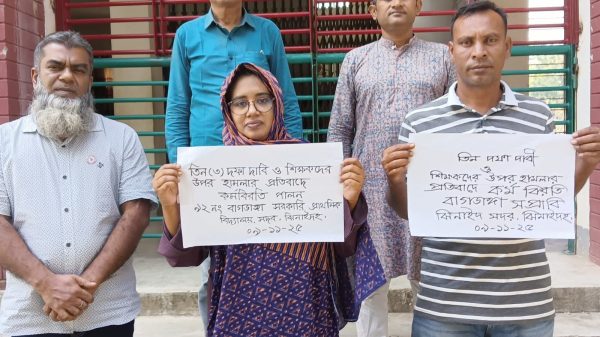 তিন(৩) দফা দাবি ও শিক্ষকদের
উপর হামলার প্রতিবাদে
কর্মবিরতি পালন
৯২নং বাগডাঙ্গা সরকারি প্রাথমিক
বিদ্যালয়, সদর, ঝিনাইদহ।
০৯-১১-২৫
তিন দফা দাবী
ও
শিক্ষকদের উপর হামলার
প্রতিবাদে কর্ম বিরতি
বাগডাঙ্গা সপ্রাবি
ঝিনাইদহ সদর, ঝিনাইদহ.
০৯-১১-২৫